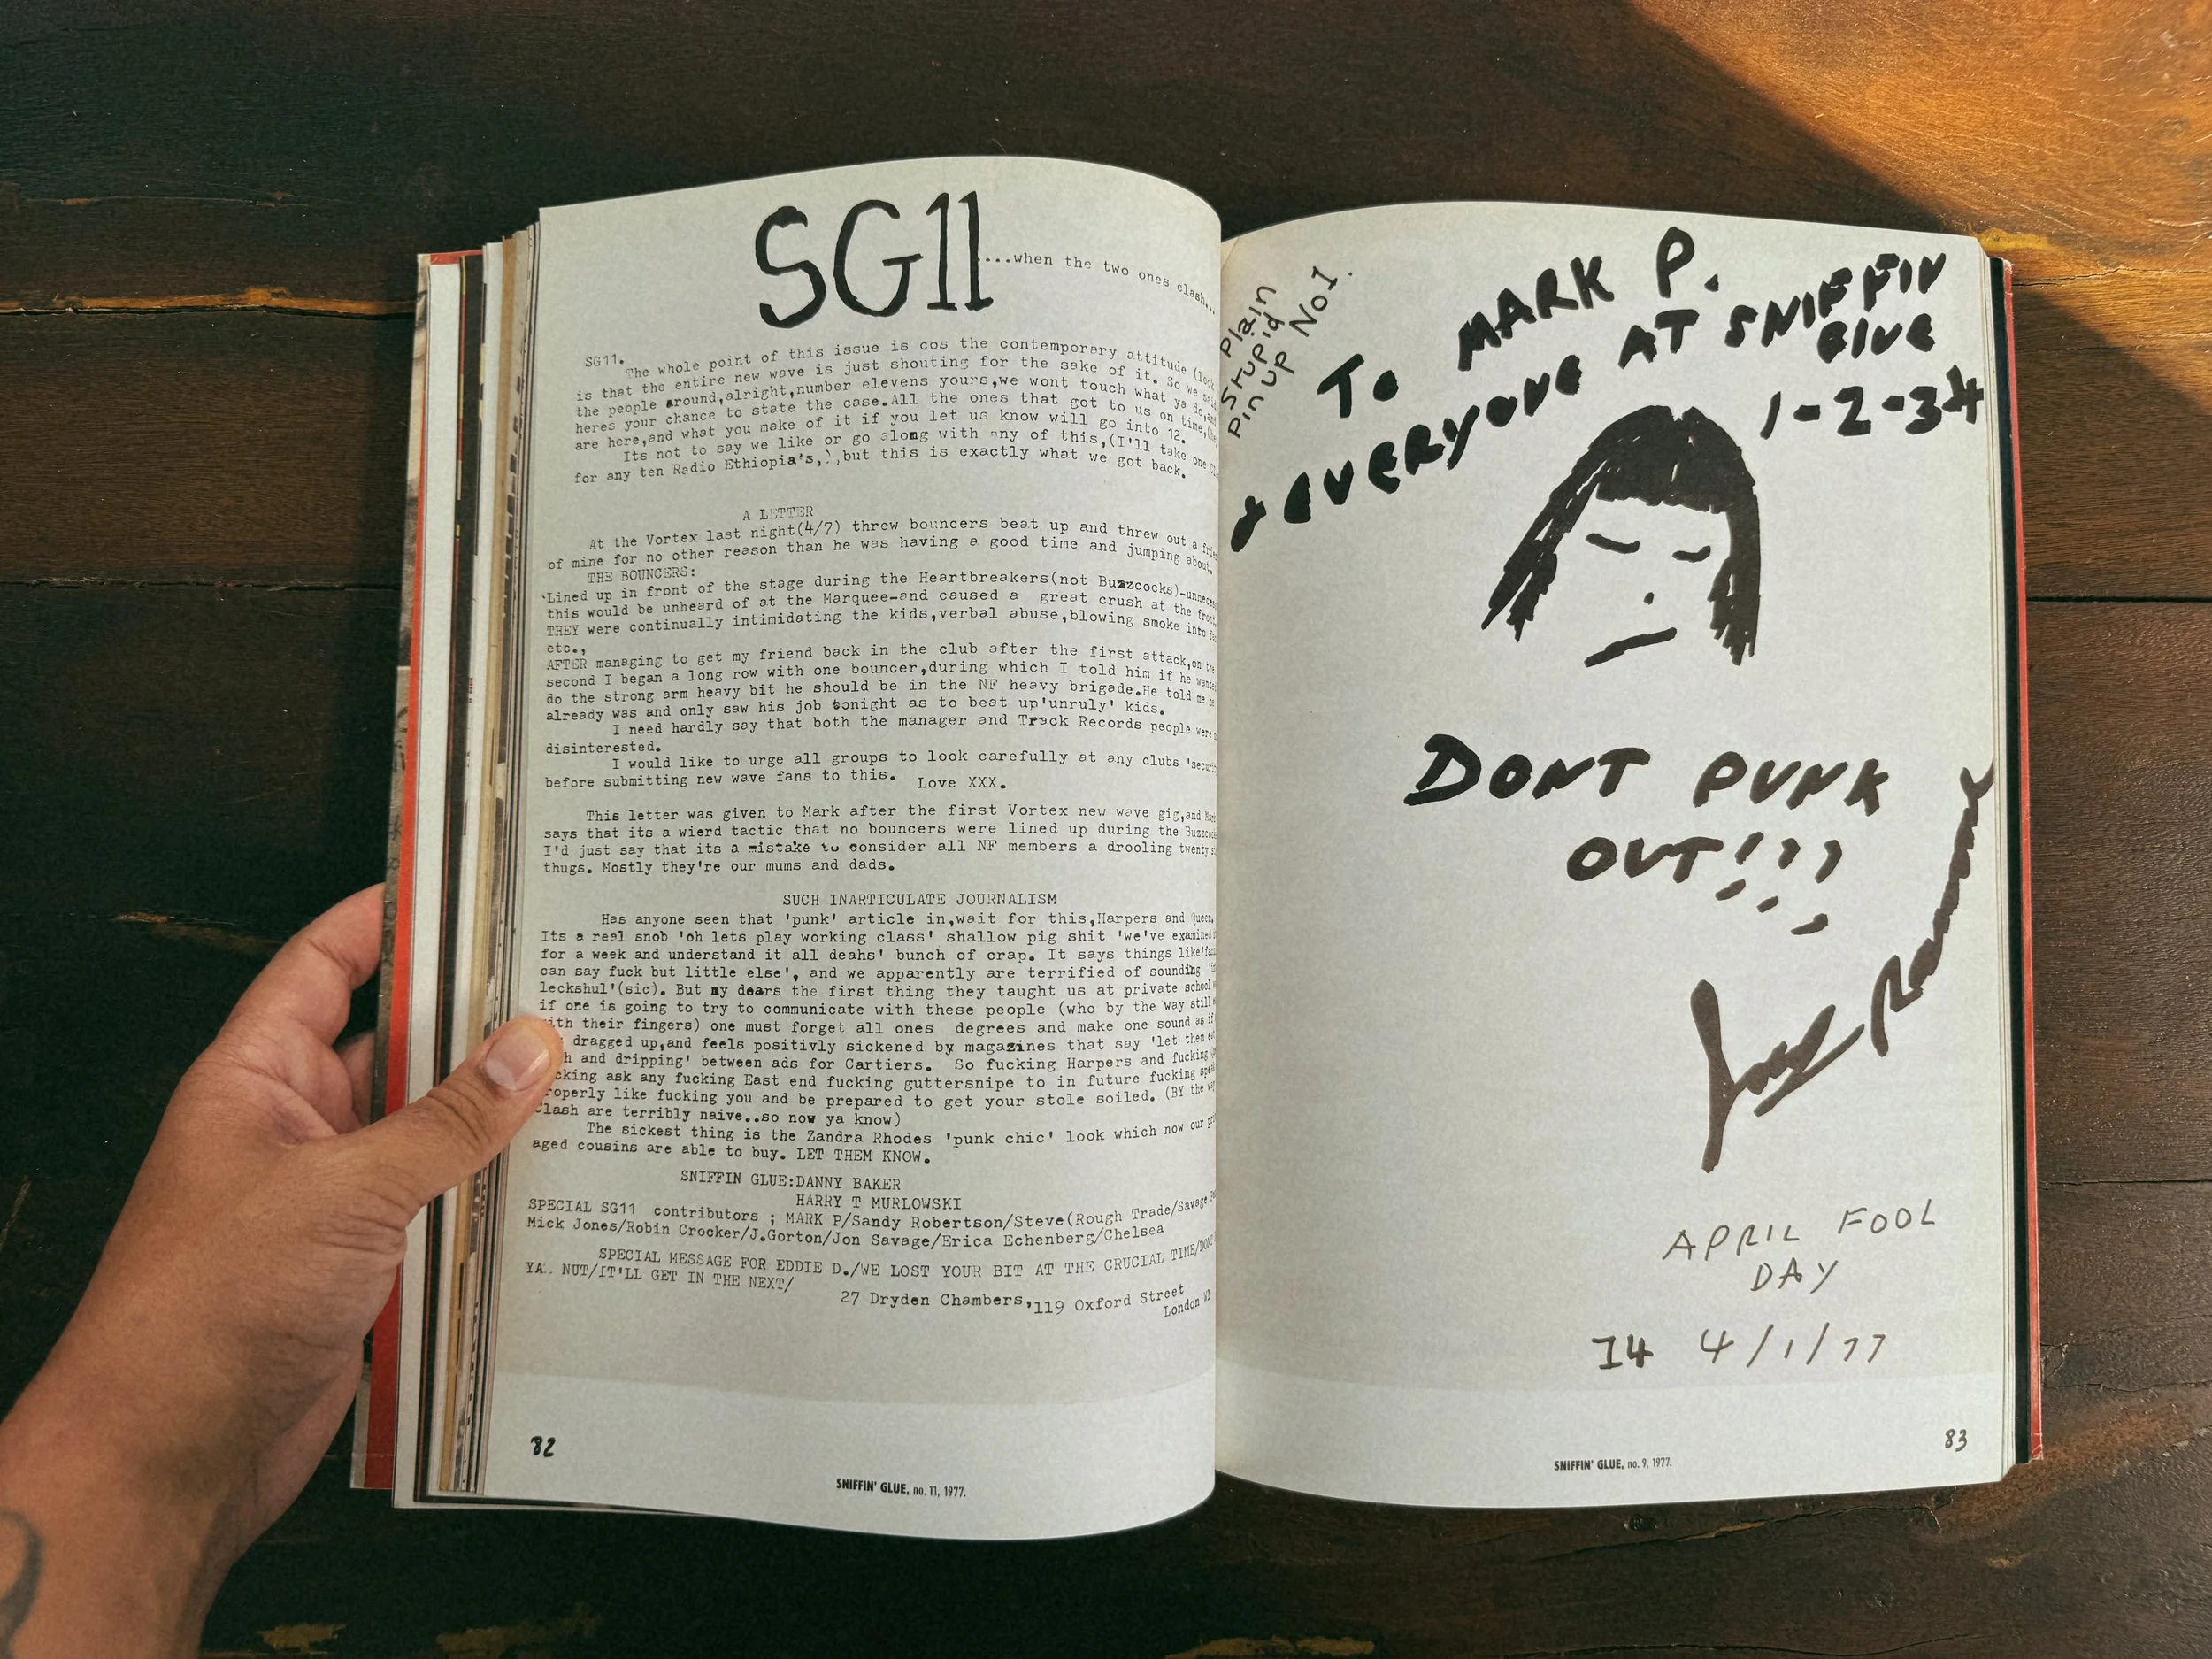 SG11
....when the two ones clash....
SG11.
The whole point of this issue is cos the contemporary attitude
is that the entire new wave is just shouting for the sake of it. So we said
the people around,alright,number elevens yours,we wont touch what ya do,and
heres your chance to state the case.All the ones that got to us on time,
are here,and what you make of it if you let us know will go into 12.
Its not to say we like or go along with any of this,(I'll take one
for any ten Radio Ethiopia's,),but this is exactly what we got back.
A LETTER
At the Vortex last night(4/7) threw bouncers beat up and threw out a
of mine for no other reason than he was having a good time and jumping about.
THE BOUNCERS:
Lined up in front of the stage during the Heartbreakers(not Buzzcocks)-
this would be unheard of at the Marquee-and caused a great crush at the front.
THEY were continually intimidating the kids,verbal abuse,blowing smoke into
etc.,
AFTER managing to get my friend back in the club after the first attack,on the
second I began a long row with one bouncer,during which I told him if he wanted
do the strong arm heavy bit he should be in the NF heavy brigade.He told me he
already was and only saw his job tonight as to beat up'unruly' kids.
I need hardly say that both the manager and Track Records people were
disinterested.
I would like to urge all groups to look carefully at any clubs
before submitting new wave fans to this. Love XXX.
This letter was given to Mark after the first Vortex new wave gig,and
says that its a wierd tactic that no bouncers were lined up during the
I'd just say that its a mistake to consider all NF members a drooling twenty
thugs. Mostly they're our mums and dads.
SUCH INARTICULATE JOURNALISM
Has anyone seen that 'punk' article in,wait for this,Harpers and Queen.
Its a real snob 'oh lets play working class' shallow pig shit 'we've examined
for a week and understand it all deahs' bunch of crap. It says things
can say fuck but little else', and we apparently are terrified of sounding
leckshul'(sic). But my dears the first thing they taught us at private school
if one is going to try to communicate with these people (who by the way still
with their fingers) one must forget all ones degrees and make one sound as if
dragged up,and feels positivly sickened by magazines that say 'let them
and dripping' between ads for Cartiers. So fucking Harpers and fucking
ask any fucking East end fucking guttersnipe to in future fucking
properly like fucking you and be prepared to get your stole soiled. (BY the way
Clash are terribly naive..so now ya know)
The sickest thing is the Zandra Rhodes 'punk chic' look which now our
aged cousins are able to buy. LET THEM KNOW.
SNIFFIN GLUE:DANNY BAKER
HARRY T MURLOWSKI
SPECIAL SG11 contributors ; MARK P/Sandy Robertson/Steve(Rough Trade/Savage
Mick Jones/Robin Crocker/J.Gorton/Jon Savage/Erica Echenberg/Chelsea
SPECIAL MESSAGE FOR EDDIE D./WE LOST YOUR BIT AT THE CRUCIAL TIME/
NUT/IT'LL GET IN THE NEXT/
27 Dryden Chambers,119 Oxford Street
London
82
SNIFFIN' GLUE, no. 11, 1977.
Plain
Stupid
Pin up No1.
To MARK P.
& EVERYONE AT SNIFFIN
GLUE
1-2-34
DONT PUNK
OUT!!!
Joey Ramone
APRIL FOOL
DAY
14 4/1/77
83
SNIFFIN' GLUE, no. 9, 1977.